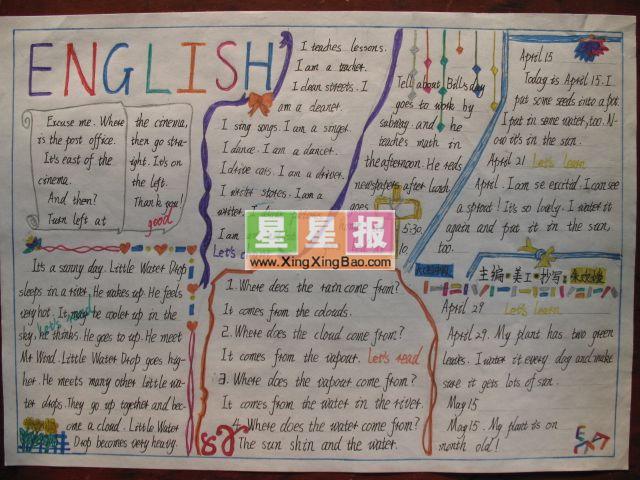 ENGLISH
Excuse me. Where
is the post office.
It's east of the
cinema.
And then?
Turn left at
the cinema,
then go stra-
ight. It's on
the left.
Thank you!
good
I teaches lessons.
I am a teacher.
I clean streets. I
am a cleaner.
I sing songs. I am a singer.
I dance. I am a dancer.
I drive cars. I am a driver.
I write stores. I am a
writer.
I am
Let's
Tell about Bill's day
goes to work by
subway. and he
teaches math in
the afternoon. He reds
newspapers after lunch.
goes
5:30.
10
April 15
Today is April 15. I
put some seeds into a pot.
I put in some water, too. N-
ow it's in the sun.
April 21 Let's learn
April. I am se excitid. I can see
a sprout! It's so lovely. I water it
again and put it in the sun,
too.
主编·美工·抄写:
April 29 Let's learn
April 29. My plant has two green
leaves. I water it every day and make
sure it gets lots of sun.
May 15
May 15. My plant is on
month old!
It's a sunny day. Little Water Drop
sleeps in a river. He wakes up. He feels
very hot. It may be cooler up in the
sky, he thinks. He goes to up. He meet
Mr Wind. Little Water Drop goes hig-
her. He meets many other Little wa-
ter drops. They go up together and bec-
ome a cloud. Little Water
Drop becomes very heavy.
1. Where deos the rain come from?
It comes from the colouds.
2. Where does the cloud come from?
It comes from the vapour. Let's read
3. Where does the vapout come from?
It comes from the water in the river.
4. Where does the water come from?
The sun shin and the water.
星星报
www.XingXingBao.com